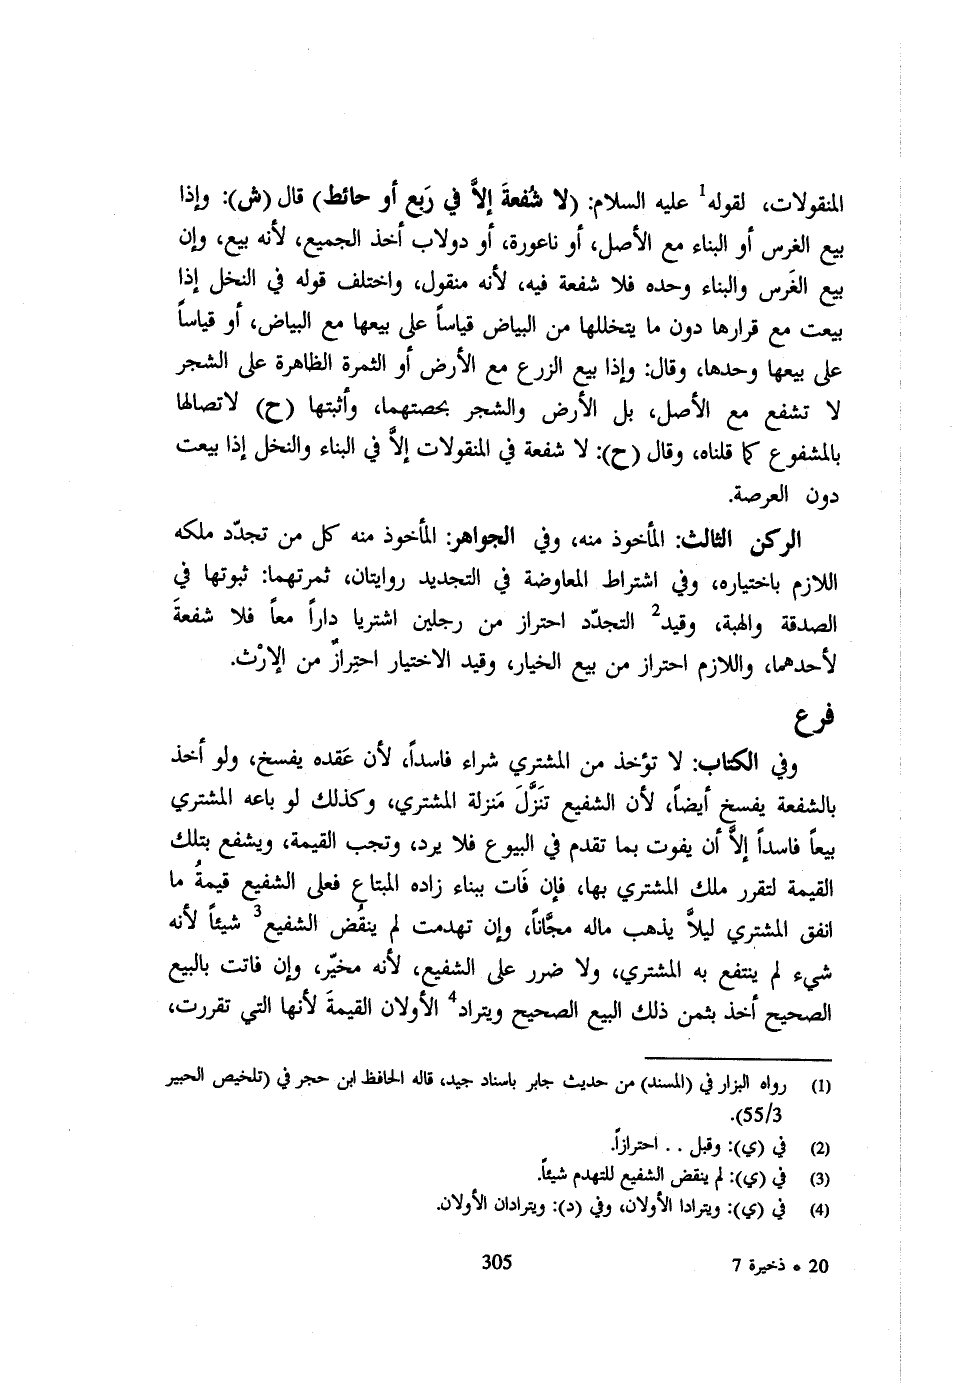 المنقولات، لقوله1 عليه السلام: (لا شُفعةَ إلاَّ في رَبع أو حائط) قال (ش): وإذا
بيع الغرس أو البناء مع الأصل، أو ناعورة، أو دولاب أخذ الجميع، لأنه بيع، وإن
بيع الغَرس والبناء وحده فلا شفعة فيه، لأنه منقول، واختلف قوله في النخل إذا
بيعت مع قرارها دون ما يتخللها من البياض قياساً على بيعها مع البياض، أو قياساً
على بيعها وحدها، وقال: وإذا بيع الزرع مع الأرض أو الثمرة الظاهرة على الشجر
لا تشفع مع الأصل، بل الأرض والشجر بحصتهما، وأثبتها (ح) لاتصالها
بالمشفوع كما قلناه، وقال (ح): لا شفعة في المنقولات إلاَّ في البناء والنخل إذا بيعت
دون العرصة.
الركن الثالث: المأخوذ منه، وفي الجواهر: المأخوذ منه كل من تجدّد ملكه
اللازم باختياره، وفي اشتراط المعاوضة في التجديد روايتان، ثمرتهما: ثبوتها في
الصدقة والهبة، وقيد2 التجدّد احتراز من رجلين اشتريا داراً معاً فلا شفعةَ
لأحدهما، واللازم احتراز من بيع الخيار، وقيد الاختيار احتِرازٌ من الإرْث.
فرع
وفي الكتاب: لا تؤخذ من المشتري شراء فاسداً، لأن عَقده يفسخ، ولو أخذ
بالشفعة يفسخ أيضاً، لأن الشفيع تنَزَّلَ مَنزلة المشتري، وكذلك لو باعه المشتري
بيعاً فاسداً إلاَّ أن يفوت بما تقدم في البيوع فلا يرد، وتجب القيمة، ويشفع بتلك
القيمة لتقرر ملك المشتري بها، فإن فَات ببناء زاده المبتاع فعلى الشفيع قيمةُ ما
انفق المشتري ليلاَّ يذهب ماله مجَّاناً، وإن تهدمت لم ينقُض الشفيع3 شيئاً لأنه
شيء لم ينتفع به المشتري، ولا ضرر على الشفيع، لأنه مخيّر، وإن فاتت بالبيع
الصحيح أخذ بثمن ذلك البيع الصحيح ويتراد4 الأولان القيمةَ لأنها التي تقررت،
(1) رواه البزار في (المسند) من حديث جابر باسناد جيد، قاله الحافظ ابن حجر في (تلخيص الحبير
55/3).
(2) في (ي): وقبل . . احترازاً.
(3) في (ي): لم ينقض الشفيع للتهدم شيئاً.
(4) في (ي): ويترادا الأولان، وفي (د): ويترادان الأولان.
20 • ذخيرة 7
305